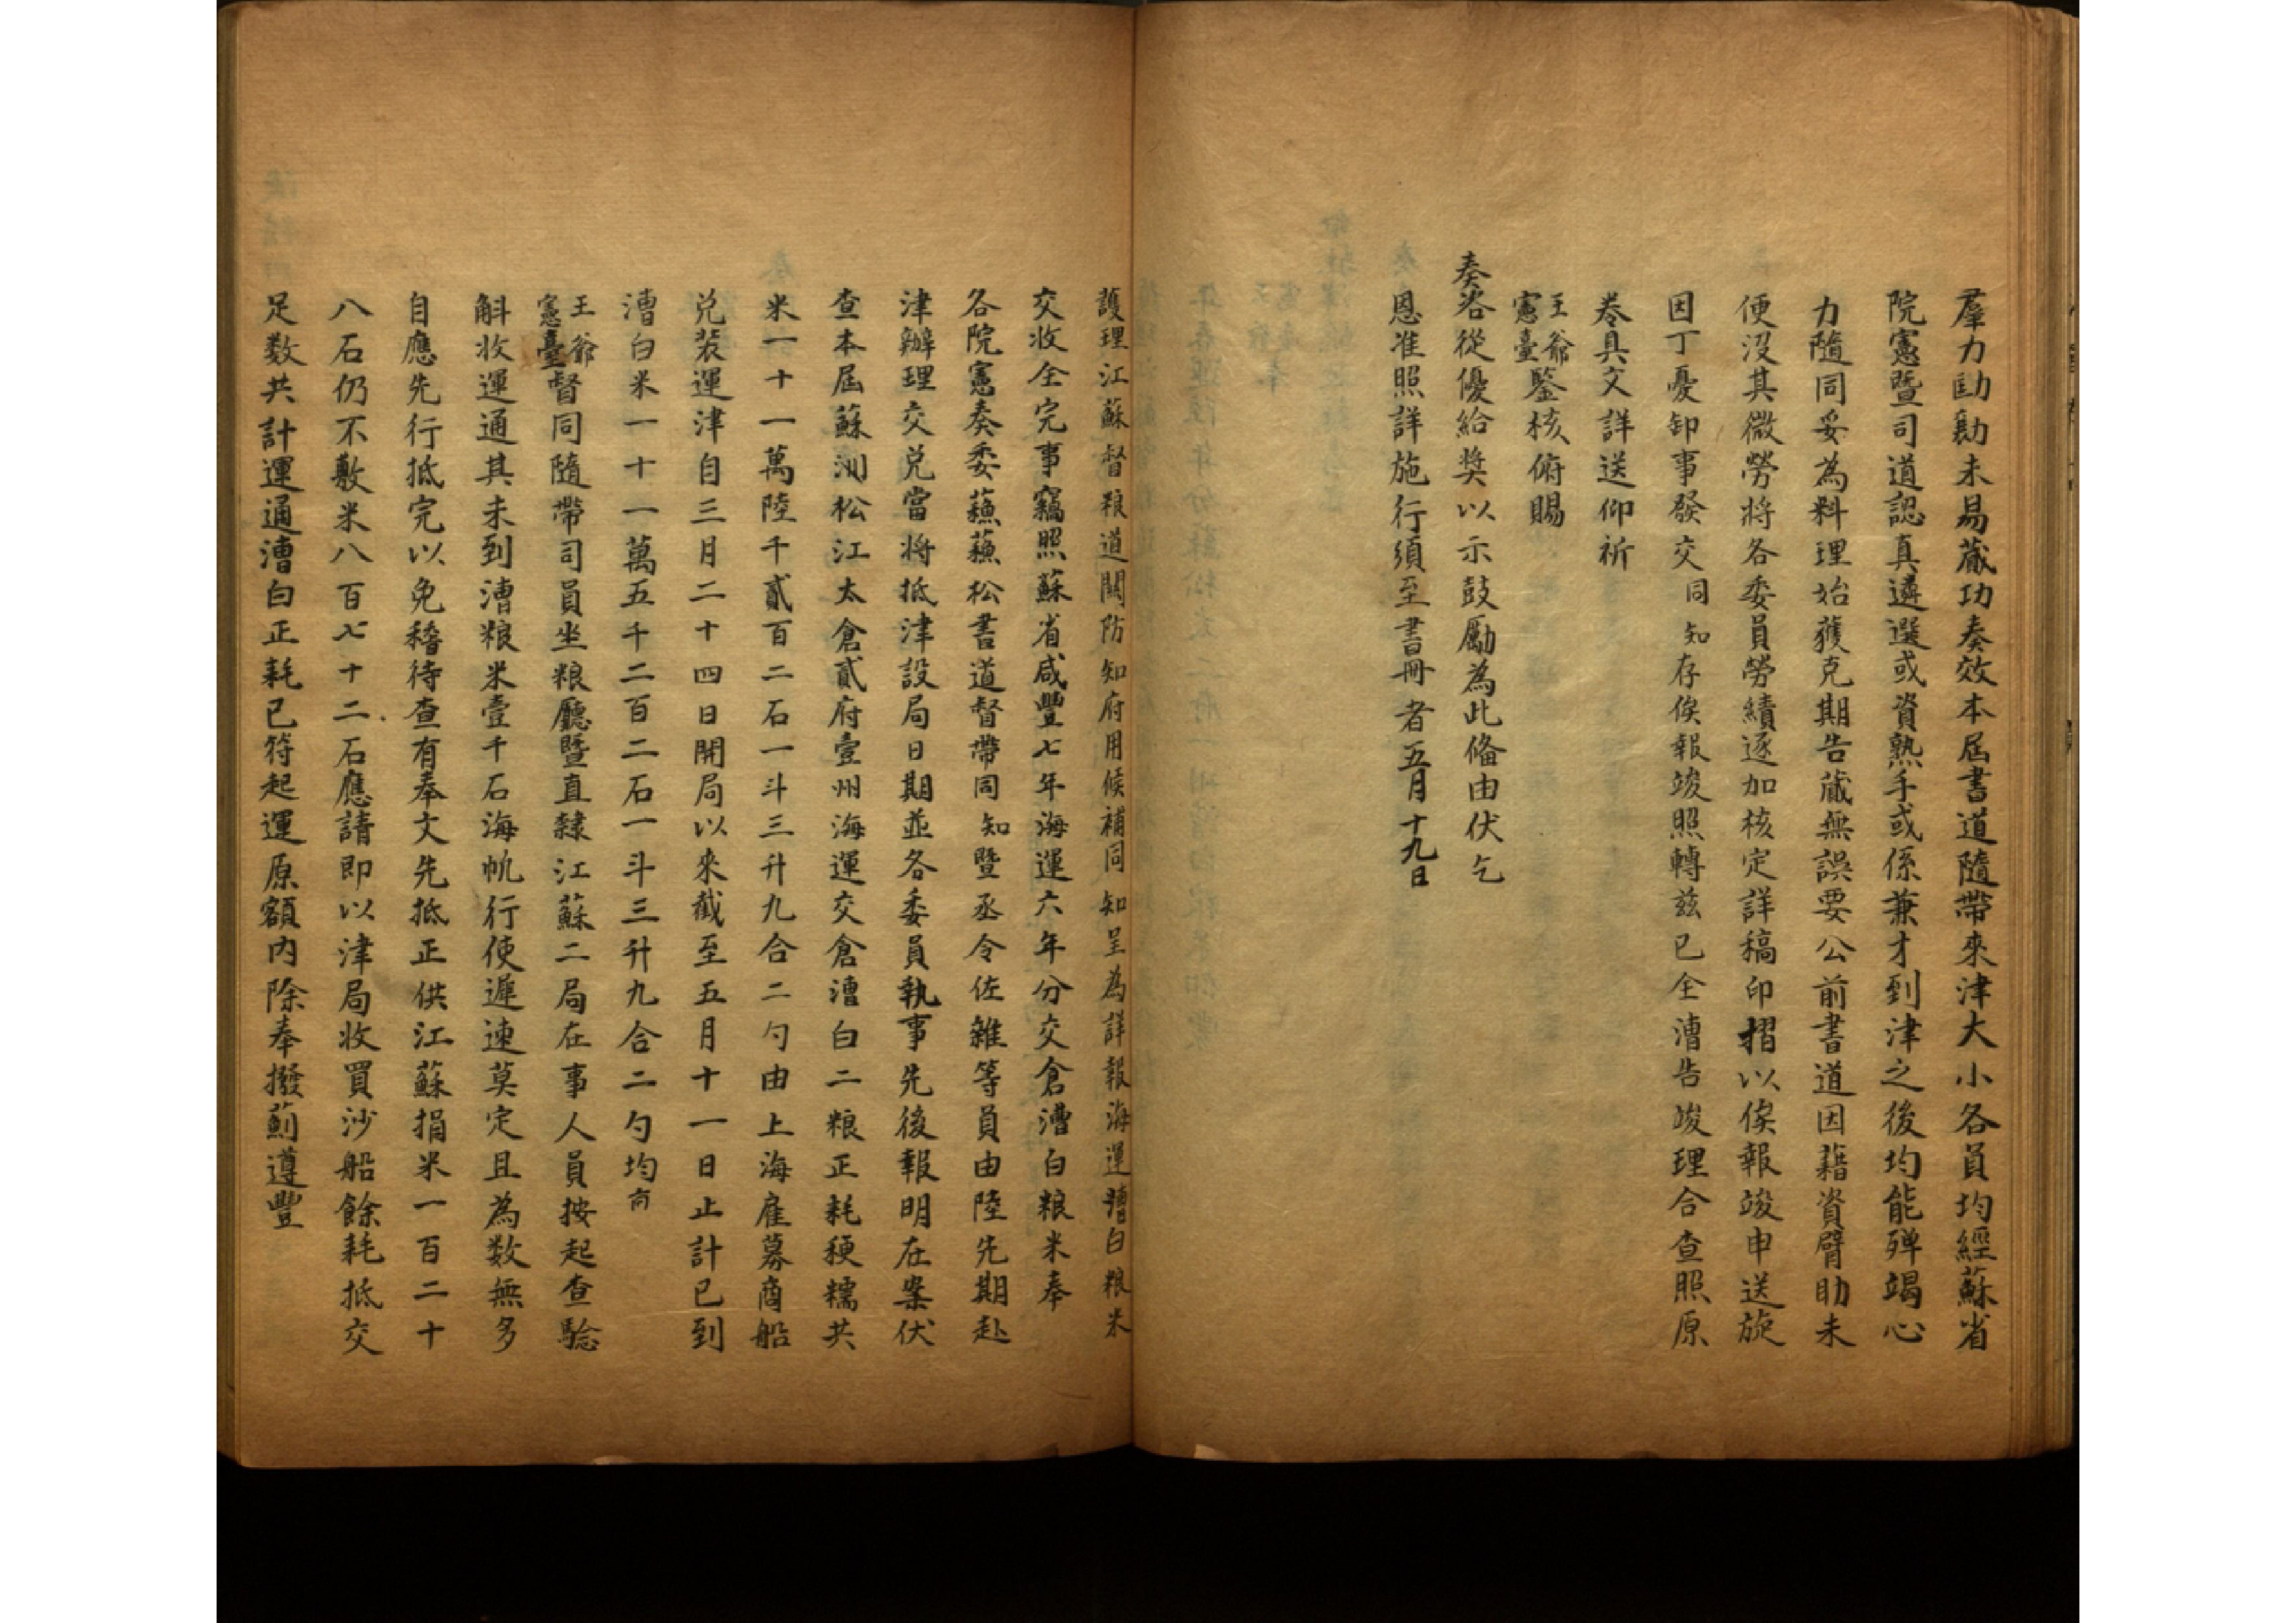 羣力勷勷未易蕆功奏效本屆書道隨帶來津大小各員均經蘇省
院憲暨司道認真遴選或資熟手或係兼才到津之後均能殫竭心
力隨同妥為料理始獲克期告蕆無誤要公前書道因藉資臂助未
便沒其微勞將各委員勞績逐加核定詳稿印摺以俟報竣申送旋
因丁憂卸事發交同知存俟報竣照轉兹已全漕告竣理合查照原
卷具文詳送仰祈
王爺憲臺鑒核俯賜
奏咨從優給獎以示鼓勵為此俻由伏乞
恩准照詳施行須至書冊者五月十九日
護理江蘇督粮道關防知府用候補同知呈為詳報海運漕白粮米
交收全完事竊照蘇省咸豐七年海運六年分交倉漕白粮米奉
各院憲奏委蘓蘓松書道督帶同知暨丞令佐雜等員由陸先期赴
津辦理交兑當將抵津設局日期並各委員執事先後報明在案伏
查本屆蘇洲松江太倉貳府壹州海運交倉漕白二粮正耗稉糯共
米一十一萬陸千貳百二石一斗三升九合二勺由上海雇募商船
兑裝運津自三月二十四日開局以來截至五月十一日止計已到
漕白米一十一萬五千二百二石一斗三升九合二勺均商
王爺憲臺督同隨帶司員坐粮廳暨直隸江蘇二局在事人員按起查驗
斛收運通其未到漕粮米壹千石海帆行使遲速莫定且為数無多
自應先行抵完以免稽待查有奉文先抵正供江蘇捐米一百二十
八石仍不敷米八百七十二石應請即以津局收買沙船餘耗抵交
足数共計運通漕白正耗已符起運原額内除奉撥薊遵豐